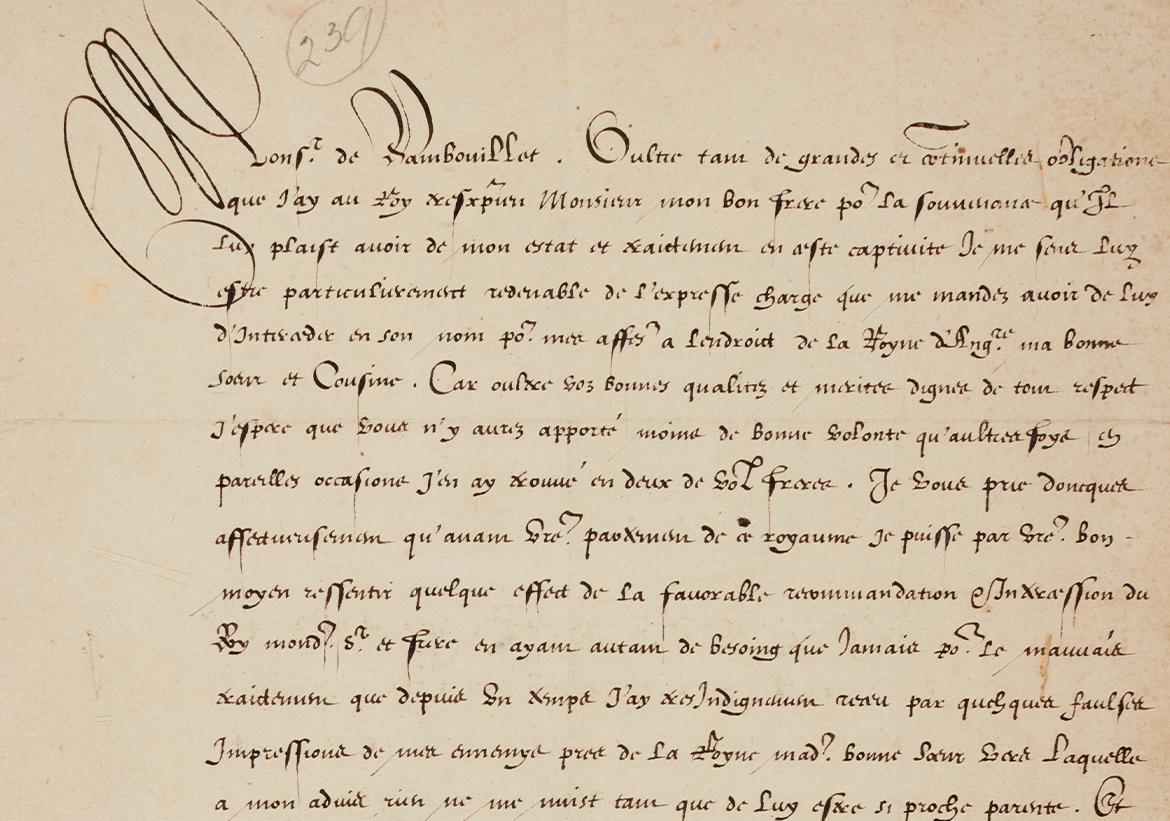 239
Mons.r de Rambouillet . Oultre tant de grandes et cõtinuelles obligations
que J'ay au Roy tresxp̃ien Monsieur mon bon frere po.r la souvenance qu'Il
luy plaist avoir de mon estat et traictement en ceste captivite Je me sens luy
estre particulierement redevable de l'expresse charge que me mandez avoir de luy
d'Interceder en son nom po.r mes affes a lendroict de la Royne d'Angre ma bonne
soeur et Cousine . Car oultre voz bonnes qualitez et merites dignes de tout respect
J'espere que vous n'y aurez apporté moins de bonne volonte qu'aultresfoys en
pareilles occasions J'en ay trouvé en deux de voz freres . Je vous prie doncques
affectueusement qu'avant vre. partement de ce royaume Je puisse par vre. bon -
moyen ressentir quelque effect de la favorable recommandation & Intercession du
Roy mond. Sr et frere en ayant autant de besoing que Jamais po.r le mauvais
traictement que depuis un temps J'ay tresIndignement receu par quelques faulses
Impressions de mes ennemys pres de la Royne mad. bonne soeur vers laquelle
a mon advis rien ne me nuist tant que de luy estre si proche parente . Et